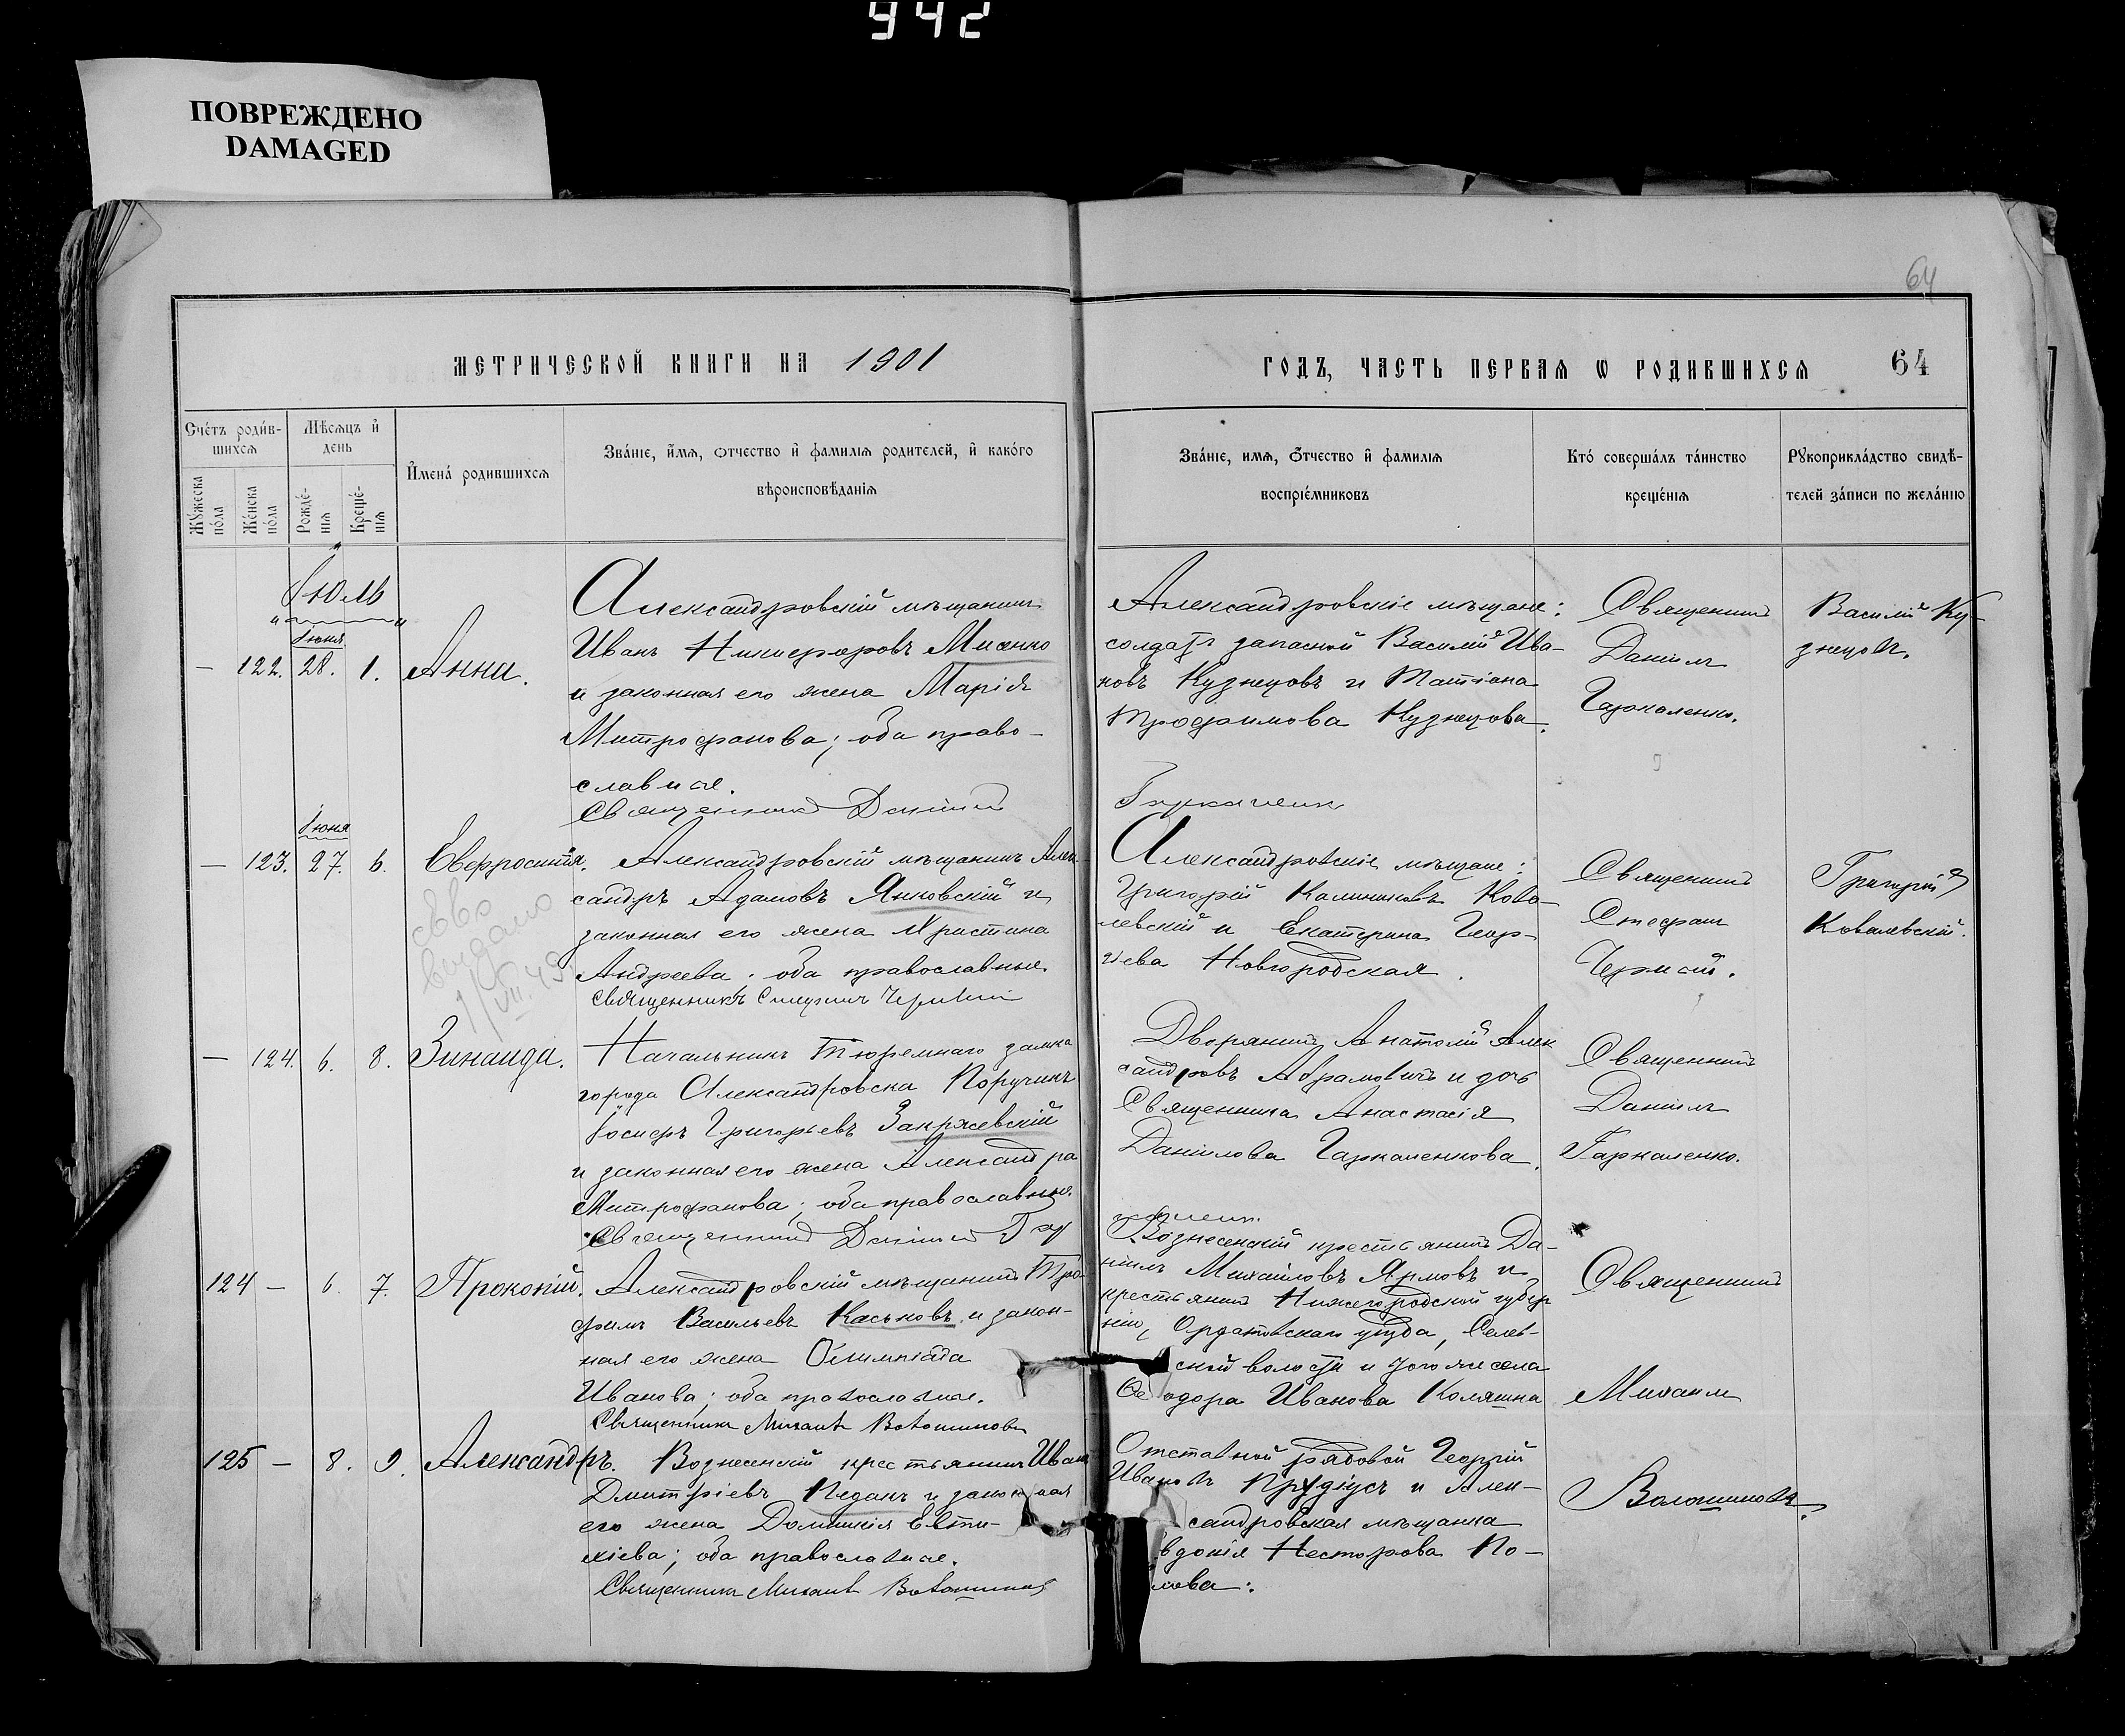 942
ПОВРЕЖДЕНО
DAMAGED
64
МЕТРИЧЕСКОЙ КНИГИ НА 1901
ГОДЪ, ЧАСТЬ ПЕРВАѦ Ѡ РОДИВШИХСѦ 64
Сче́тъ роди́в-
шихсѧ
Мѣ́сѧцъ и҆
день
И҆мена́ родившихсѧ
Зва́нїе, и҆́мѧ, ѻтчество и҆ фамилїѧ родителей, и҆ како́го
вѣроисповѣданїѧ
Мꙋ́жеска
по́ла
Же́нска
по́ла
Рожде́-
нїѧ
Креще́-
нїѧ
Зва́нїе, имѧ, ѻ҆́тчество и҆ фамилїѧ
воспрїе́мниковъ
Кто́ соверша́лъ та́инство
креще́нїѧ
Рꙋкоприкла́дство свидѣ́-
телей за́писи по жела́нїю
Іюль
Іюня
— 122. 28. 1. Анна.
Александровскій мѣщанинъ
Иванъ Никифоровъ
и законная его жена Марія
Митрофанова; оба право-
славные.
Священникъ Даніилъ
Александровскіе мѣщане:
солдатъ запасной Василій Ива-
новъ Кузнецовъ и Татіана
Трофимова Кузнецова.
Священникъ
Даніилъ
Гаркаленко.
Василій Ку-
знецовъ.
Іюня
— 123. 27. 6. Евфросинія.
выдано
Александровскій мѣщанинъ Алек-
сандръ Адамовъ Янковскій и
законная его жена Христина
Андреева; оба православные.
Священникъ Стефанъ
Александровскіе мѣщане:
Григорій Калиниковъ Кова-
левскій и Екатерина Геор-
гіева Новгородская.
Священникъ
Стефанъ
Григорій
Ковалевскій.
— 124. 6. 8. Зинаида.
Начальникъ Тюремнаго замка
города Александровска Поручикъ
Іосифъ Григорьевъ Закржевскій
и законная его жена Александра
Митрофанова; оба православные.
Священникъ Даніилъ Гар
Дворянинъ Анатолій Алек
сандровъ Абрамовичъ и дочь
Священника Анастасія
Даніилова Гаркаленкова.
Священникъ
Даніилъ
Гаркаленко.
124 — 6. 7. Прокопій.
Александровскій мѣщанинъ Тро-
фимъ Васильевъ Каськовъ и закон-
ная его жена Олимпіада
Иванова; оба православные.
Священникъ Михаилъ Волошиновъ
Вознесенскій крестьянинъ Да-
ніилъ Михайловъ Ярмовъ и
крестьянинъ Нижегородской губер
ніи, Ардатовскаго уѣзда,
ской волости и того же села
Ѳеодора Иванова
Священникъ
Михаилъ
Волошиновъ.
125 — 8. 9. Александръ.
Вознесенскій крестьянинъ Иванъ
Дмитріевъ и законная
его жена Домникія Евти-
хіева; оба православные.
Священникъ Михаилъ Волошиновъ
Отставной рядовой Георгій
Ивановъ Прудіусъ и Алек-
сандровская мѣщанка
вдокія Несторова По-
лова.